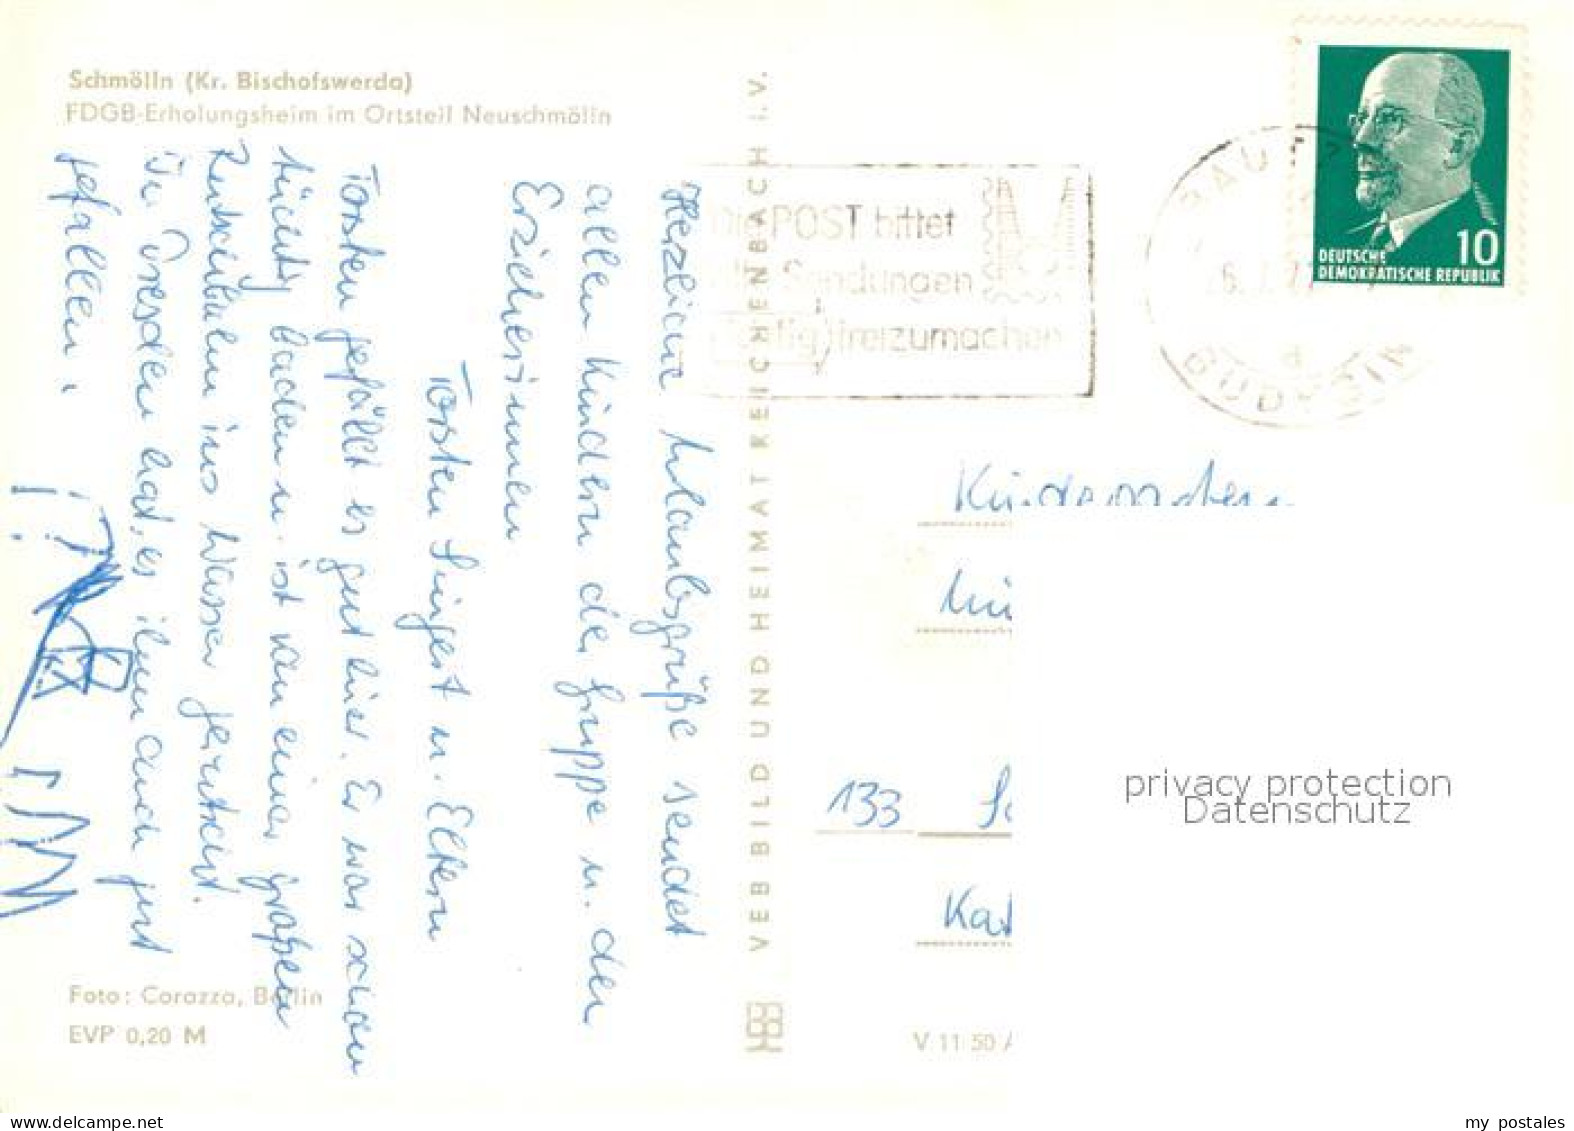 Schmölln (Kr. Bischofswerda)
FDGB-Erholungsheim im Ortsteil Neuschmölln
Herzliche Urlaubsgrüße sendet
allen Kindern der Gruppe u. den
Erzieherinnen
Torsten u. Eltern
Torsten gefällt es gut hier. Er war schon
tüchtig baden u. ist von einer großen
Rutschbahn ins Wasser gerutscht.
In Dresden hat es ihm auch gut
gefallen.
Foto: Corazza, Berlin
EVP 0,20 M
VEB BILD UND HEIMAT REICHENBACH I.V.
V 11 50
Die POST bittet
alle Sendungen
freizumachen
BAUTZEN
BUDYŠIN
10
DEUTSCHE
DEMOKRATISCHE REPUBLIK
133
privacy protection
Datenschutz
my postales